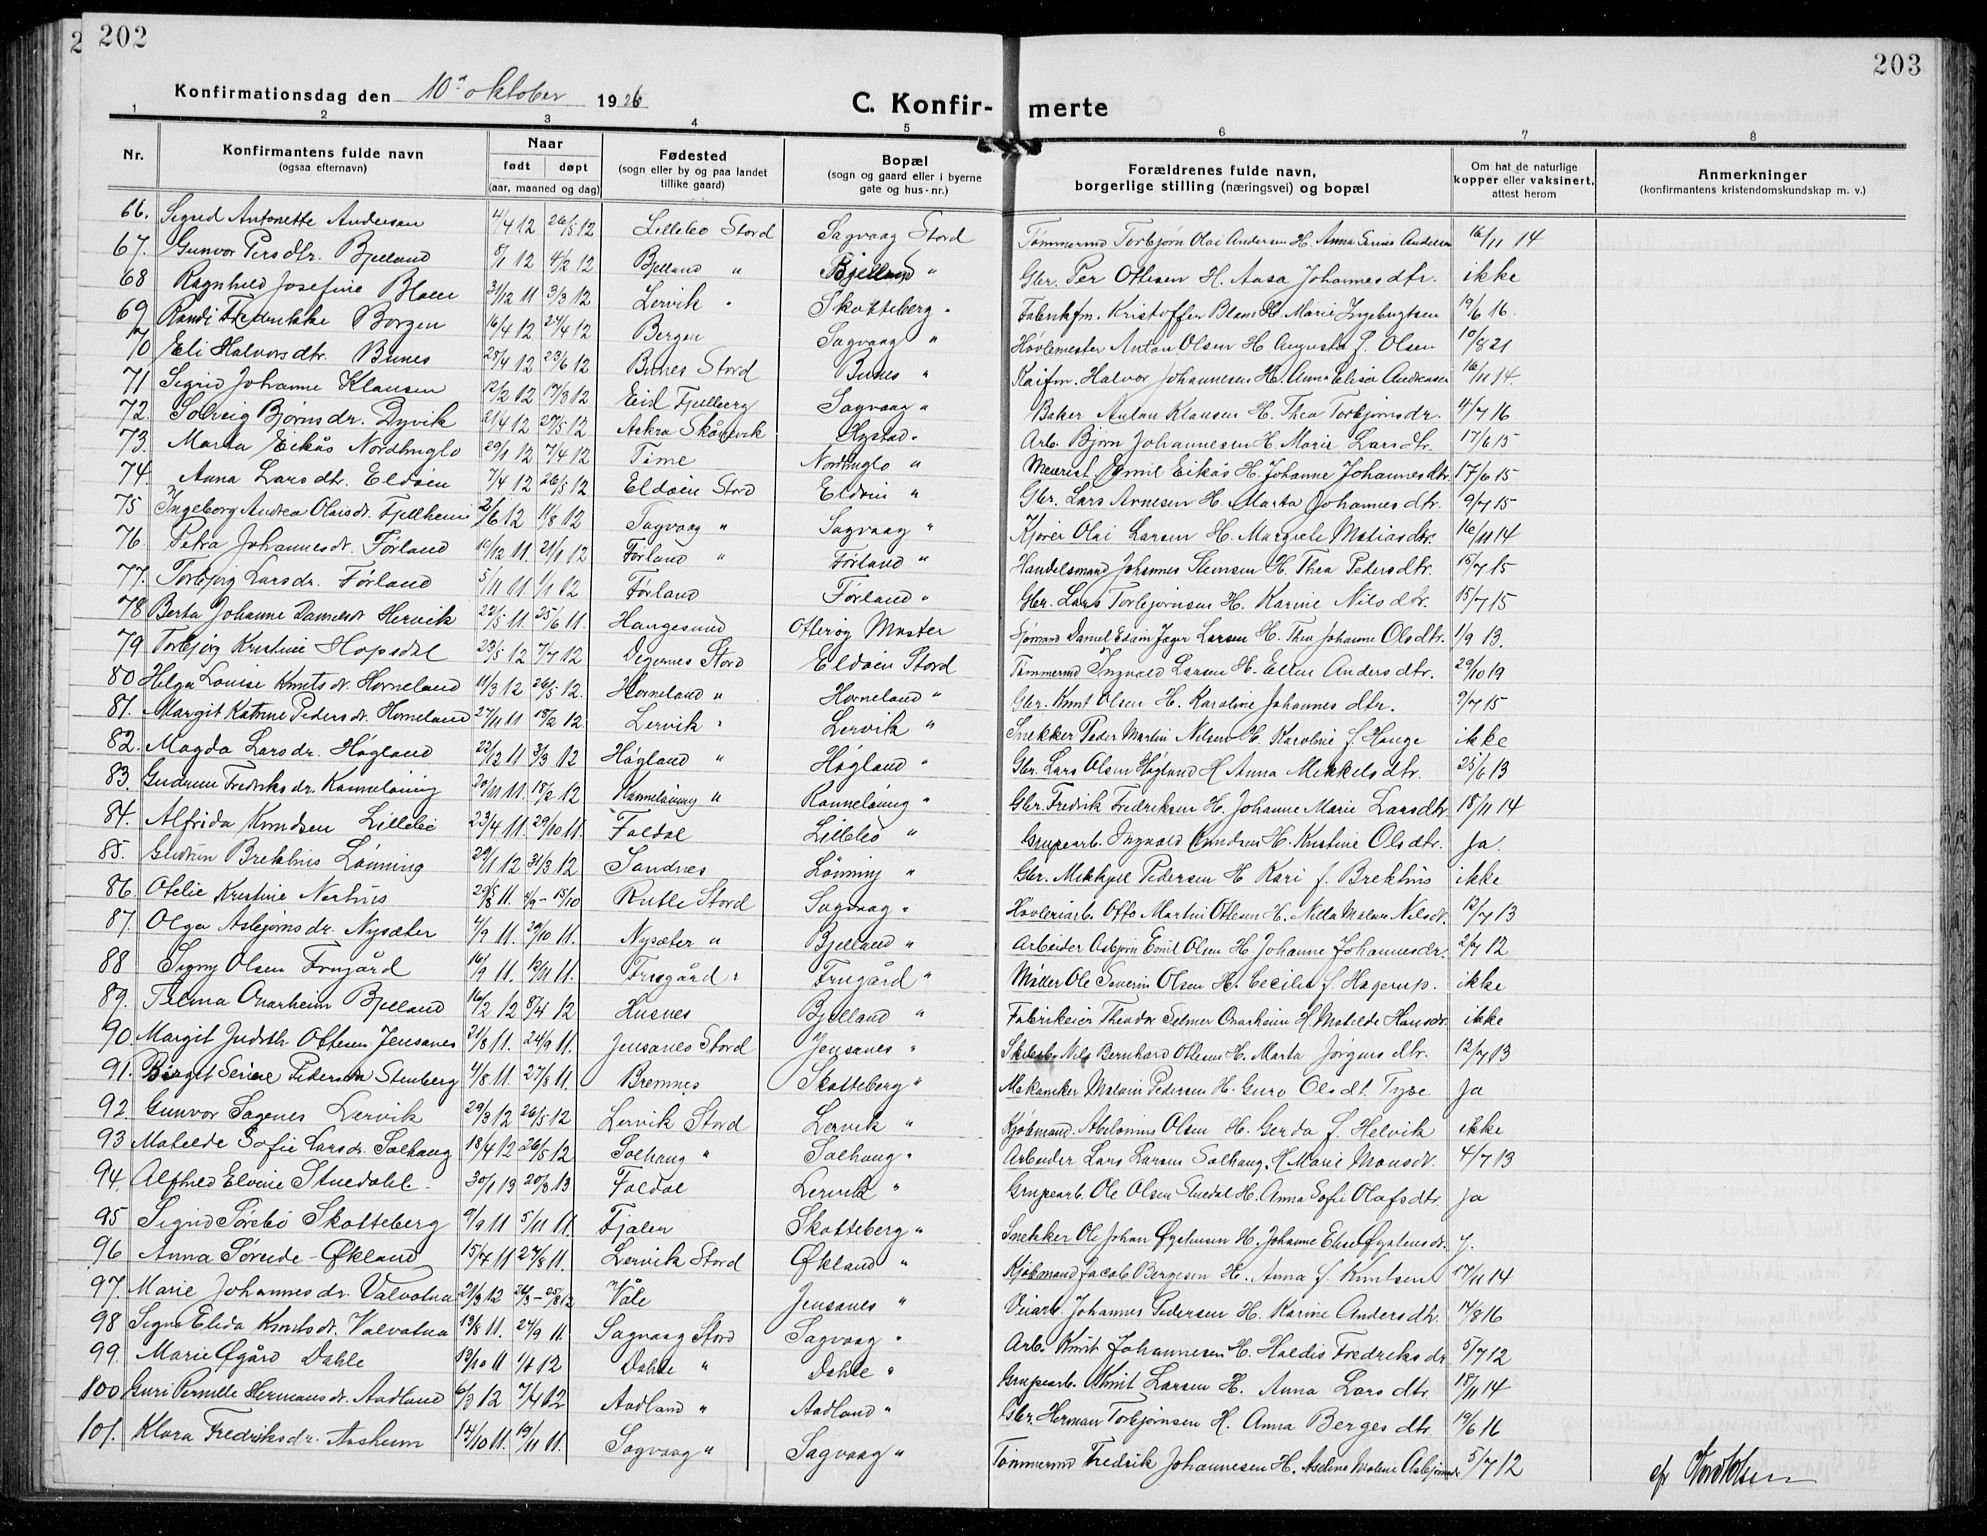 202
203
Konfirmationsdag den 10de oktober 1926
C. Konfir-merte
1 2 3 4 5 6 7 8
Nr. Konfirmantens fulde navn (ogsaa efternavn) Naar født døpt (aar, maaned og dag) Fødested (sogn eller by og paa landet tillike gaard) Bopæl (sogn og gaard eller i byerne gate og hus-nr.) Forældrenes fulde navn, borgerlige stilling (næringsvei) og bopæl Om hat de naturlige kopper eller vaksinert, attest herom Anmerkninger (konfirmantens kristendomskundskap m. v.)
66. Sigrid Antonette Andersen 4/4 12 26/5 12 Lillebø Stord Sagvaag Stord Tømmermd Torbjørn Olai Andersen H. Anna Serine Andersen 16/11 14
67. Gunvor Persdtr. Bjelland 8/1 12 4/2 12 Bjelland " Bjelland " Gbr. Per Ottesen H. Aasa Johannesdtr. ikke
68 Ragnhild Josefine Blom 31/12 11 3/3 12 Lervik " Skotteberg " Fabrikfm. Kristoffer Blom H. Marie Ingebrigtsen 19/6 16.
69 Randi Fredrikke Borgen 16/4 12 24/4 12 Bergen Sagvaag " Høvlemester Anton Olsen H. Augusta f. Olsen 10/8 21
70 Eli Halvorsdtr. Bunes 28/4 12 23/6 12 Bunes Stord Bunes " Kaifm. Halvor Johannesen H. Anna Elisa Andreasen 16/11 14.
71 Sigrid Johanne Klausen 12/2 12 17/3 12 Eid Fjelberg Sagvaag " Baker Anton Klausen H. Thea Torbjørnsdr. 4/7 16
72. Solveig Bjørnsdr. Dyvik 21/4 12 27/5 12 Aakra Skånevik Hystad " Arb. Bjørn Johannesen H. Marie Larsdtr. 17/6 15
73. Marta Eikås Nordhuglo 29/1 12 7/4 12 Time Nordhuglo " Meierist Emil Eikås H. Johanne Johannesdtr. 17/6 15
74. Anna Larsdtr. Eldøien 7/4 12 26/5 12 Eldøien Stord Eldøien " Gbr. Lars Arnesen H. Marta Johannesdtr. 9/7 15
75 Ingeborg Andrea Olaisdr. Fjellheim 2/6 12 11/8 12 Sagvaag " Sagvaag " Kjører Olai Larsen H. Margrete Matiasdtr. 16/11 14
76. Petra Johannesdr. Førland 19/12 11. 21/1 12 Førland " Førland " Handelsmand Johannes Stensen H. Thea Pedersdtr. 15/7 15
77. Torbjørg Larsdr. Førland 5/11 11. 1/1 12 Førland Førland " Gbr. Lars Torbjørnsen H. Karine Nilsdtr. 15/7 15
78 Berta Johanne Danielsdr Hervik 22/5 11 25/6 11. Haugesund Otterøy Moster Sjømand Daniel Edvin Jæger Larsen H. Thea Johanne Olsdtr. 1/9 13.
79 Torbjørg Kristine Hopsdal 23/5 12 7/7 12 Degernes Stord Eldøien Stord Tømmermd Ingvald Larsen H. Ellen Andersdtr. 29/10 19
80 Helga Louise Knutsdr. Horneland 11/3 12 26/5 12. Horneland " Horneland " Gbr. Knut Olsen H. Karoline Johannesdtr. 9/7 15
81. Margit Katrine Pedersdr. Horneland 27/11 11 18/2 12. Lervik " Lervik " Snekker Peder Martin Nilsen H. Karoline f. Hauge ikke
82. Magda Larsdr. Høgland 22/12 11 3/3 12 Høgland " Høgland " Gbr. Lars Olsen Høgland H Anna Mikkelsdtr. 25/6 13
83. Gudrun Fredriksdr. Kanneløning 20/11 11. 18/2 12 Kanneløning " Kanneløning " Gbr. Fredrik Fredriksen H. Johanne Marie Larsdtr 18/11 14
84. Alfrida Knudsen Lillebø 23/4 11. 29/10 11. Foldal Lillebø " Grupearb. Ingvald Knudsen H. Kristine Olsdtr. Ja.
85. Gudrun Brekhus Lønning 29/1 12 31/3 12 Sandnes Lønning " Gbr. Mikkjel Pedersen H Kari f. Brekhus ikke
86. Otelie Kristine Nesthus 29/8 11. 4/9 - 15/10 Rutle Stord Sagvaag " Høvleriarb. Otto Martin Ottesen H. Nilla Malene Nilsdr. 12/7 13
87. Olga Asbjørnsdr. Nysæter 4/9 11. 29/10 11. Nysæter " Bjelland " Arbeider Asbjørn Emil Olsen H. Johanne Johannesdr. 2/7 12
88 Signy Olsen Frugård 16/9 11. 12/11 11. Frugård " Frugård " Møller Ole Severin Olsen H. Cecilie f. Hagerup. ikke
89. Talma Onarheim Bjelland 16/2 12 8/4 12 Husnes Bjelland " Fabrikeier Theodor Selmer Onarheim H. Matilde Hansdr. ikke
90. Margit Judith Ottesen Jensanes 21/8 11. 24/9 11. Jensanes Stord Jensanes " Nils Bernhard Ottesen H. Marta Jørgensdtr. 12/7 13
91. Birgit Serine Pedersen Stenberg 4/8 11. 27/8 11. Bremnes Skotteberg " Mekaniker Matias Pedersen H. Guro Olsdt. Tyse Ja
92. Gunvor Sagenes Lervik 29/3 12 26/5 12 Lervik Stord Lervik " Kjøbmand. Abelonius Olsen H. Gerda f. Helvik ikke
93 Matilde Sofie Larsdr. Solhaug 18/4 12 26/5 12 Solhaug " Solhaug " Arbeider Lars Larsen Solhaug. H Marie Monsdr. 4/7 13
94. Alfhild Elvine Stuedahl. 30/1 13 20/3 13 Foldal Lervik " Grupearb. Ole Olsen Stuedal H. Anna Sofie Olafsdtr. Ja
95 Sigrid Sørebø Skotteberg 9/9 11 5/11 11. Fjaler Skotteberg " Snekker Ole Johan Øystensen H. Johanne Elise Øystensdr. J.
96 Anna Søreide - Økland 15/7 11 27/8 11. Lervik Stord Økland " Kjøbmand Jacob Bergesen H. Anna f. Knutsen 17/11 14
97. Marie Johannesdr. Valvatna 21/3 12 24/3 - 25/8 12 Våle Jensanes " Veiarb. Johannes Pedersen H. Karine Andersdtr. 14/8 16
98 Signe Elida Knutsdr. Valvatna 13/8 11. 24/9 11. Sagvaag Stord Sagvaag " Arb. Knut Johannesen H. Haldis Fredriksdr 5/7 12
99. Marie Øgård Dahle 13/10 11 1/1 12 Dahle " Dahle " Grupearb. Knut Larsen H. Anna Larsdtr 18/11 14
100 Guri Pernille Hermansdr. Aadland 6/3 12 7/4 12 Aadland " Aadland " Gbr. Herman Torbjørnsen H. Anna Bergesdtr. 19/6 16
101. Klara Fredriksdr. Aasheim 14/10 11. 19/11 11. Sagvaag " Sagvaag " Tømmermd Fredrik Johannesen H. Aselina Malene Asbjørnsdr 5/7 12